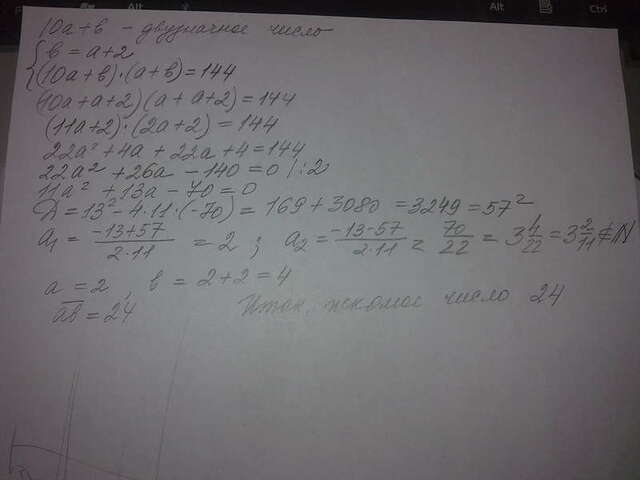 Alt
Alt
Ctrl
10а+в – двузначное число
{в = а+2
(10а+в)·(а+в)=144
(10а+а+2)(а+а+2)=144
(11а+2)·(2а+2)=144
22а²+4а+22а+4=144
22а²+26а-140=0 |:2
11а²+13а-70=0
Д=13²-4·11·(-70)=169+3080=3249=57²
а₁=(-13+57)/(2·11)=2; а₂=(-13-57)/(2·11)=70/22=3 4/22=3 2/11∉N
а=2, в=2+2=4
ав=24 Итак, искомое число 24